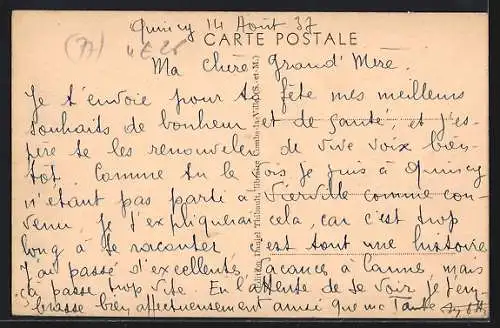 Quincy 14 Août 37
(77)
CARTE POSTALE
Ma chère Grand' Mère.
Je t'envoie pour ta fête mes meilleurs
souhaits de bonheur et de santé, et j'es-
père te les renouveler de vive voix bien-
tôt. Comme tu le vois je suis à Quincy
n'étant pas parti à Vierville comme con-
venu. Je t'expliquerai cela, car c'est trop
long à te raconter, c'est tout une histoire
J'ai passé d'excellentes vacances à Cannes, mais
ça passe trop vite. En l'attente de te voir je t'em-
brasse bien affectueusement ainsi que ma Tante
Edition Daujet Thibault, libraire Combs-la-Ville (S.-et-M.)